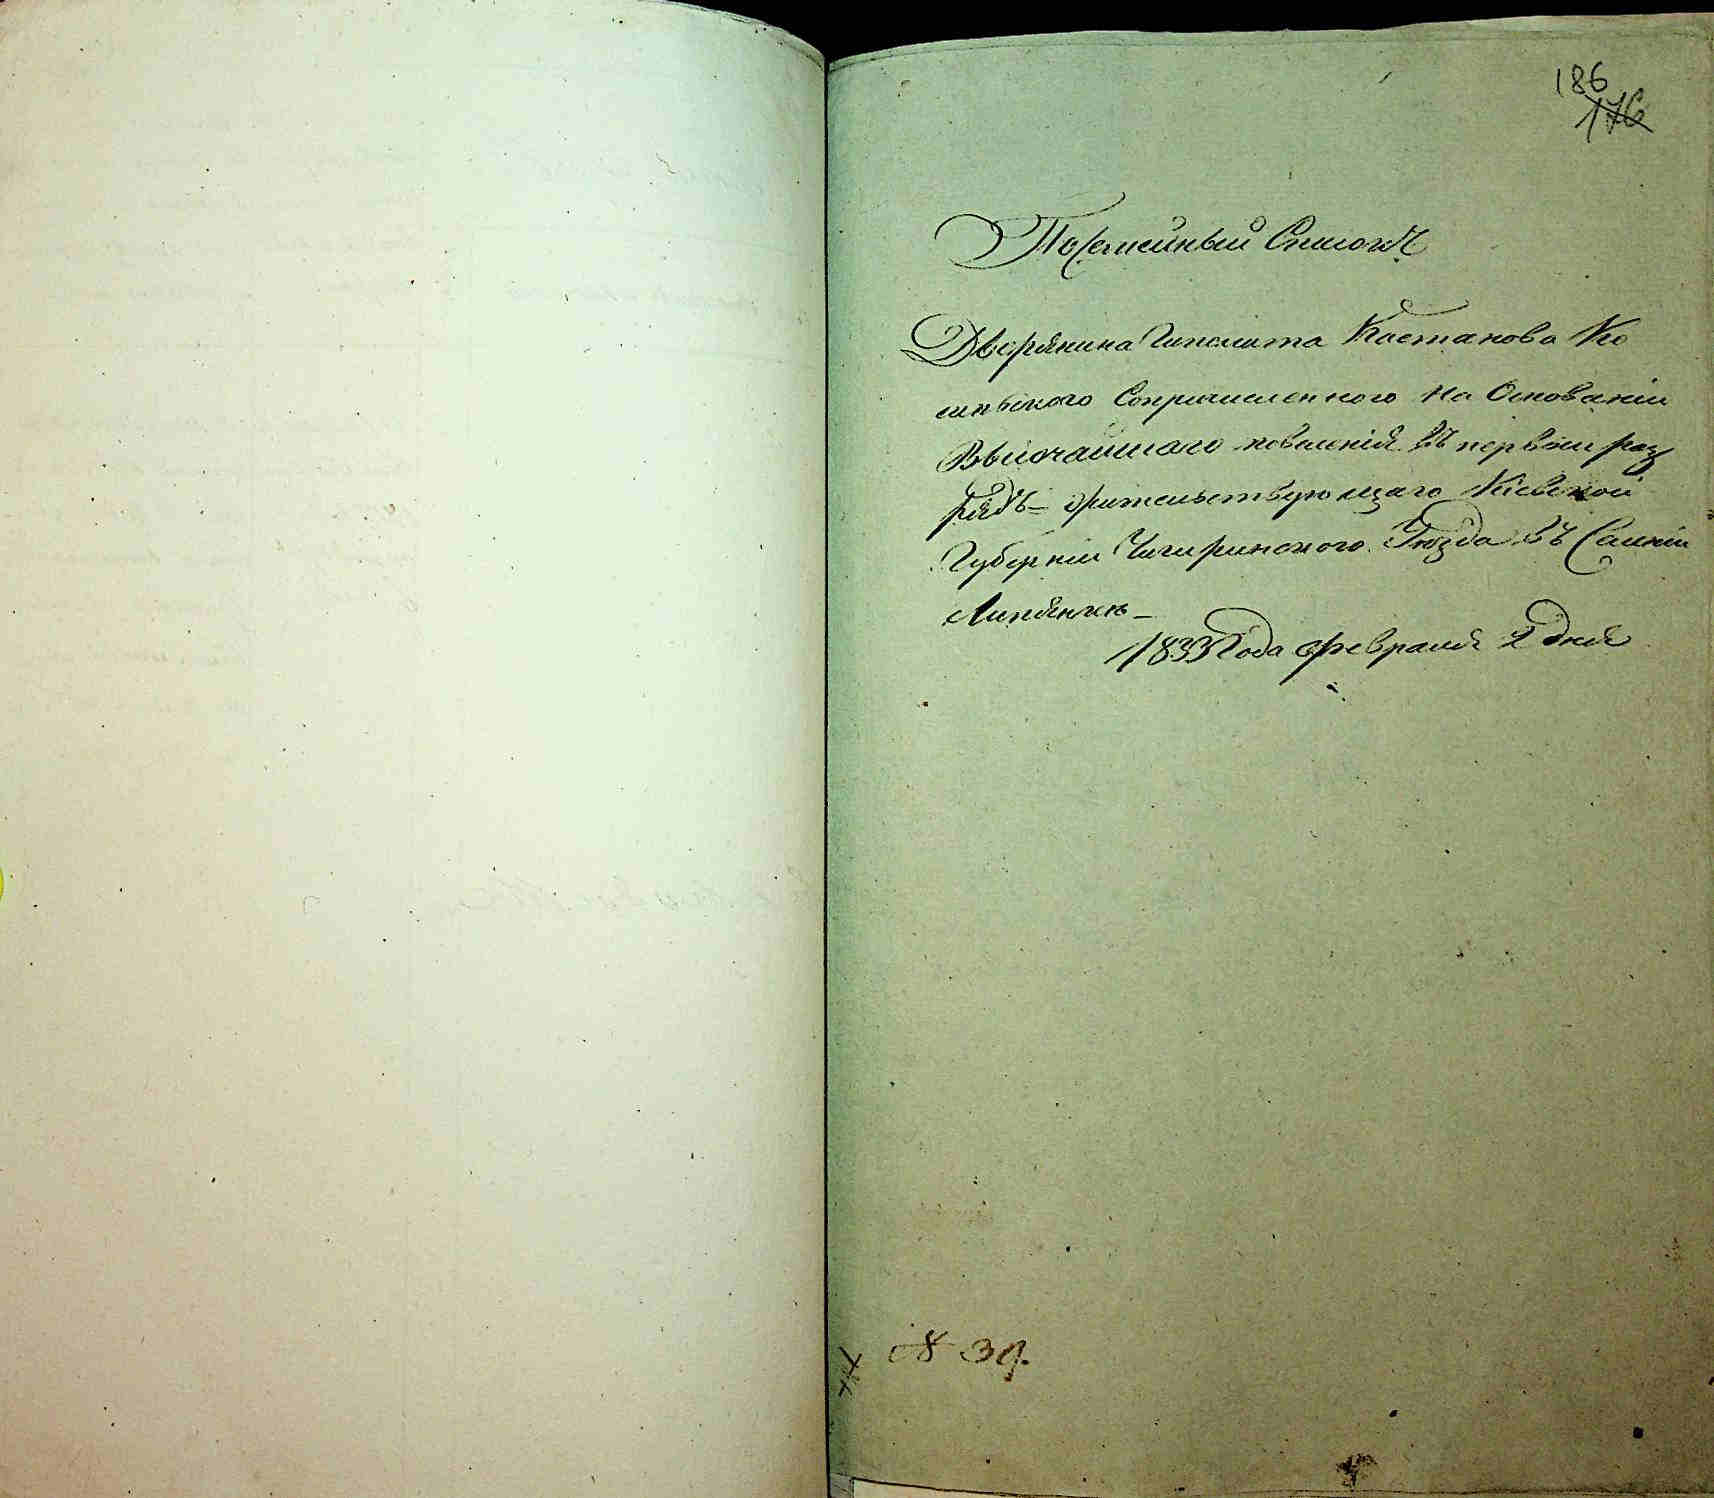 186
176
ПоСемейный Списокъ
Дворянина Гиполита Каетанова Ко
сипского Сопричисленного На Основаніи
Высочайшаго повеленія въ первый раз
рядъ = жительствующаго Кіевской
Губерніи Чигиринского Уезда въ Селеніи
Липянке –
1833 Года февраля 2 дня
№ 39.